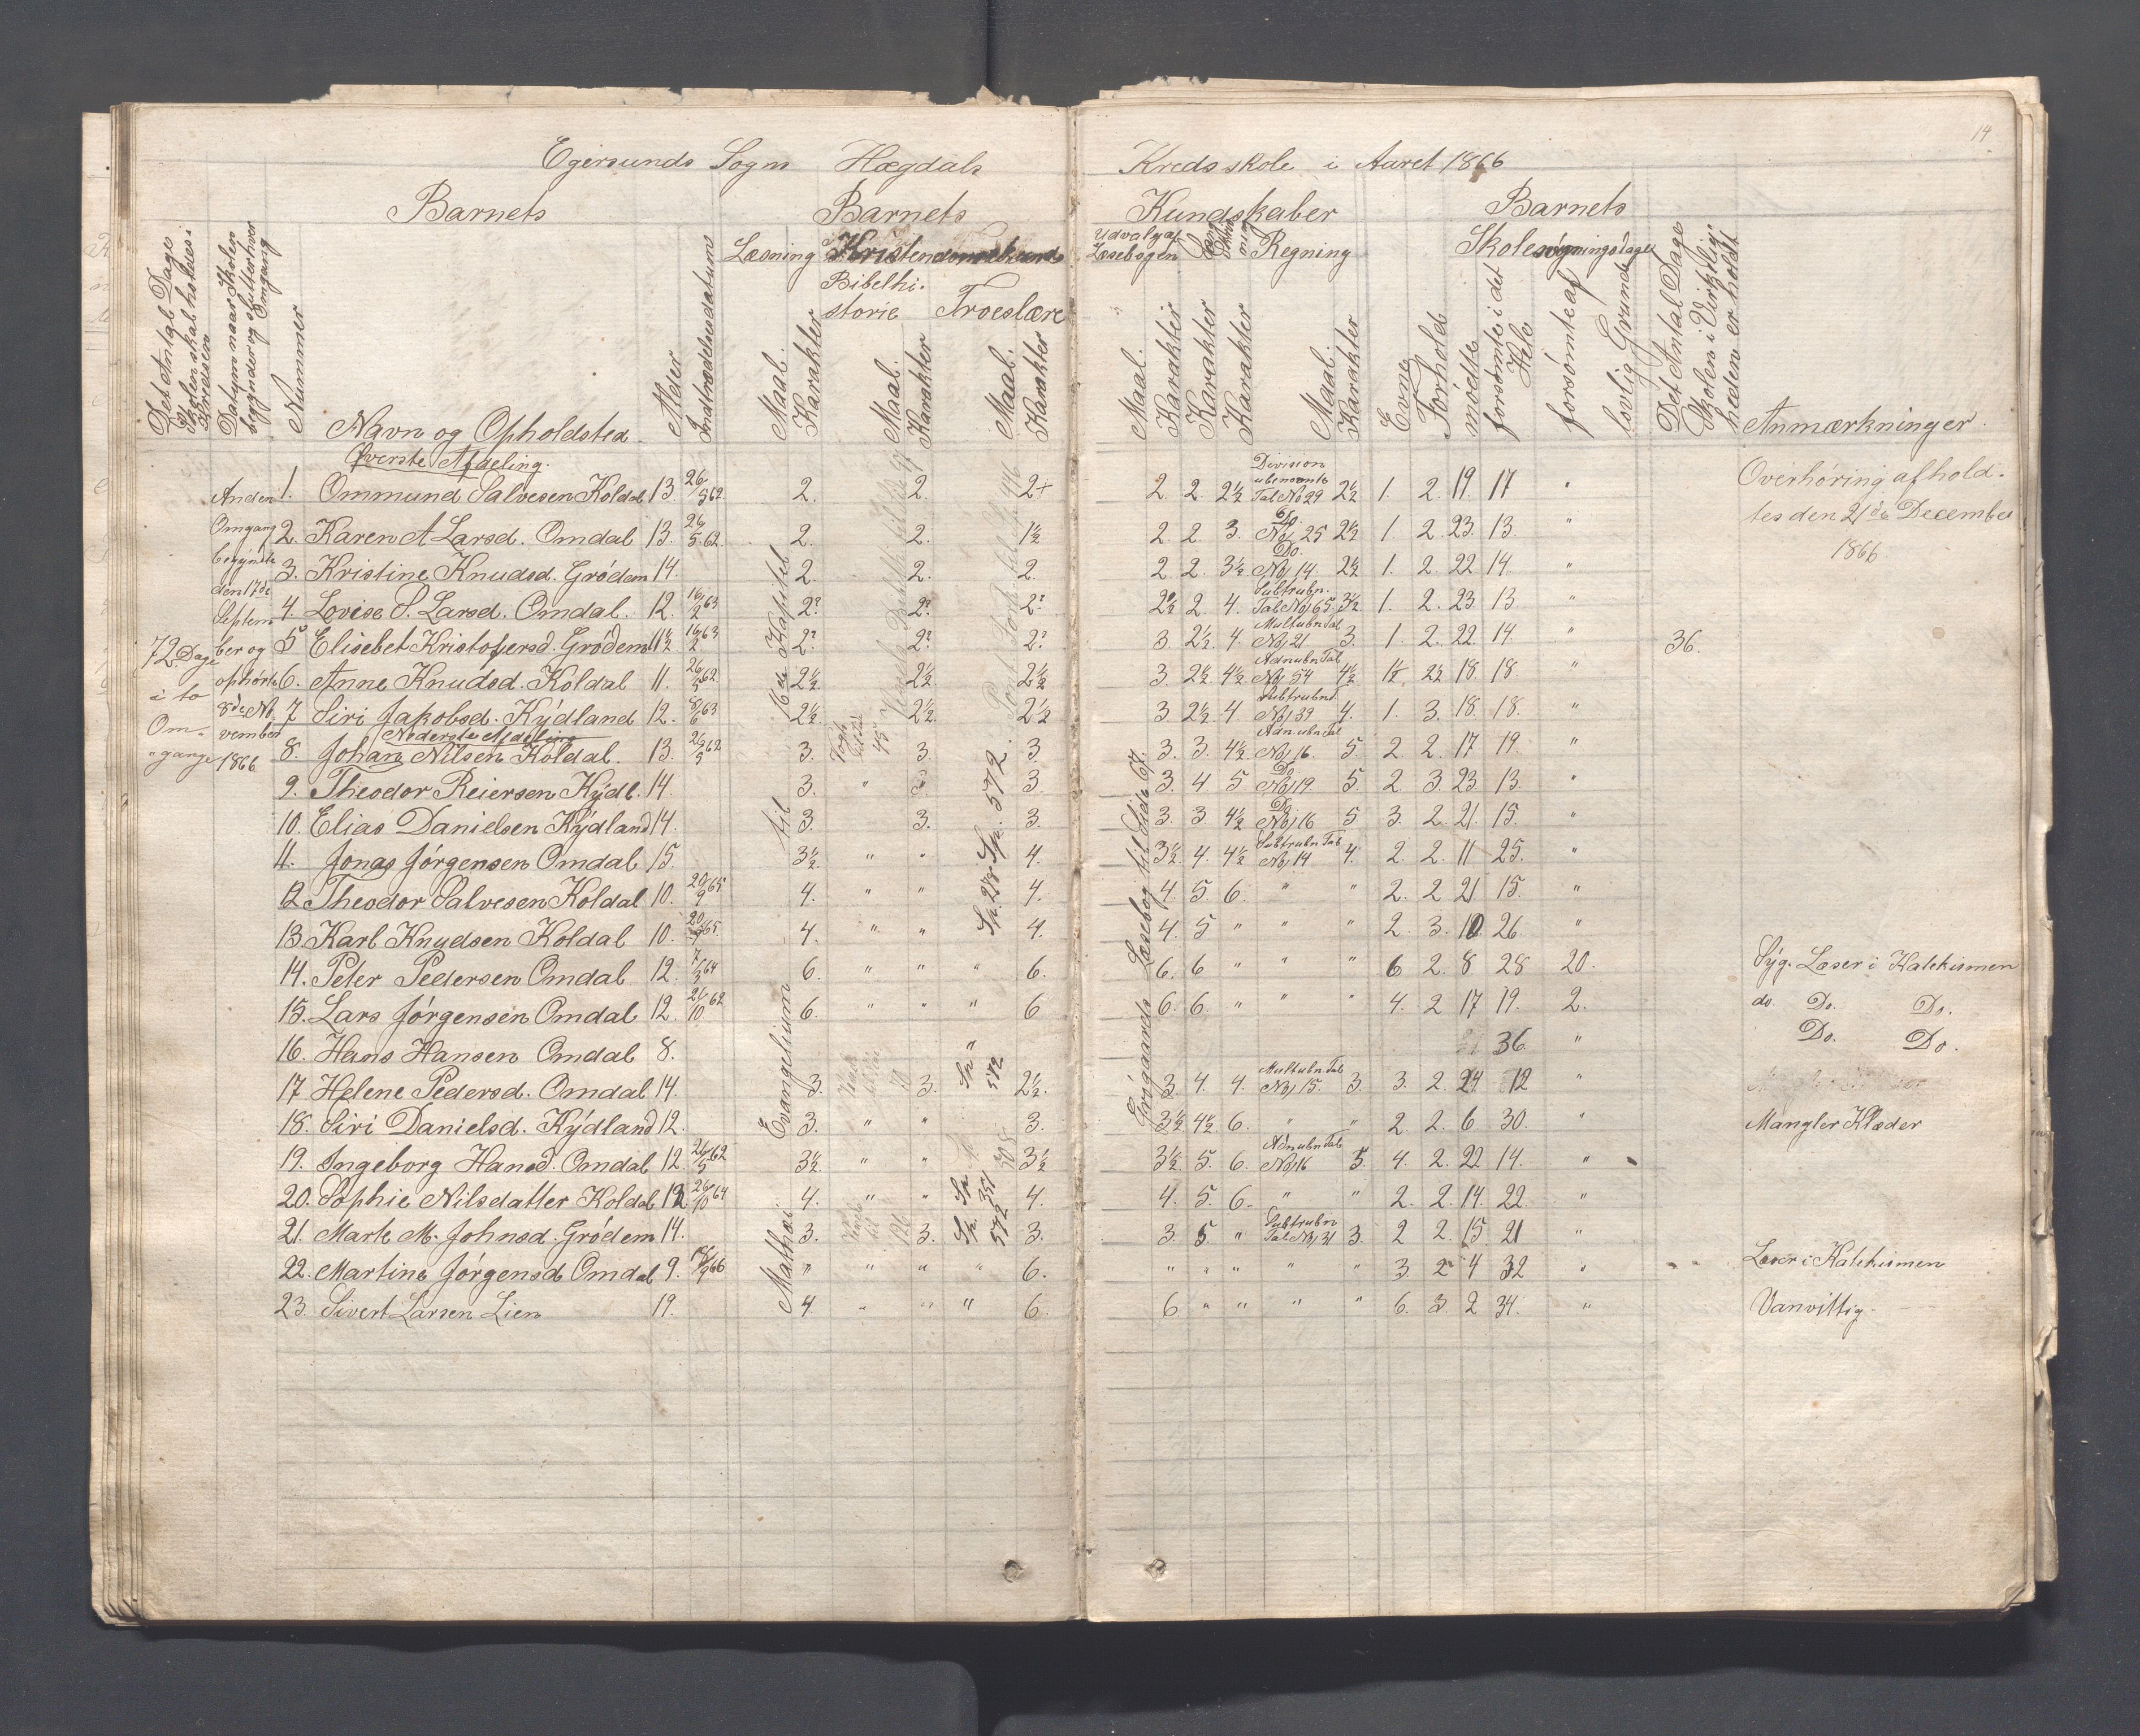 14
Egersunds Sogn Hægdals Kredsskole i Aaret 1866
Barnets Barnets Kundskaber Barnets
Læsning Kristendomskunds Udvalg af Læsebogen Sang Skrivning Regning Skolesøgningsdage
Bibelhistorie Troeslære
Det Antal Dage Skolen skal holdes i Kredsen
Datum naar Skolen begynder og slutter hver Omgang
Nummer
Navn og Opholdsted
Alder
Indtrædelsesdatum
Maal. Karakter Maal. Karakter Maal. Karakter
Maal. Karakter Karakter Karakter Maal. Karakter
Evne Forhold mødte forsømte i det Hele forsømte af lovlig Grunde
Det Antal Dage Skolen i Virkeligheden er holdt
Anmærkninger
Øverste Afdeling.
72 Dage i to Omgange
Anden Omgang begyndte den 17de September og ophørte 8de November 1866
1. Ommund Salvesen Koldal 13. 26/5 62. 2. 2. 2+ 2. 2. 2½ Division ubenævnte Tal No 29 2½ 1. 2. 19. 17 "
Overhøring afholdtes den 21de December 1866
2. Karen A Larsd. Omdal 13. 26/5 62. 2. 2. 1½ 2 2 3. Do No 25 2½ 1 2. 23. 13. "
3. Kristine Knudsd. Grødem 14. 2. 2. 2. 2 2. 3½ Do. No 14. 2½ 1. 2. 22 14. "
4. Lovise S. Larsd. Omdal. 12. 16/2 63 2? 2? 2? 2½ 2 4. Subtrubn. Tal No 65 3½ 1. 2. 23. 13. "
5 Elisebet Kristofersd. Grødem 11½ 16/2 63 2? 2? 2? 3. 2½ 4. Multubn Tal No 21 3. 1. 2. 22. 14. " 36.
6. Anne Knudsd. Koldal 11. 26/5 62 2½ 2½ 2½ 3. 2½ 4½ Adnubn Tal No 54 4½ 1½ 2½ 18. 18. "
7 Siri Jakobsd. Kýdland 12. 8/6 63 2½ 2½. 2½ 3 2½ 4. Subtrubn T. No 39 4. 1. 3. 18. 18. "
Nederste Afdeling
8. Johan Nilsen Koldal. 13. 26/5 62 3. 3. 3 3. 3. 4½ Adn ubn Tal No 16 5. 2 2. 17 19. "
9. Theodor Reiersen Kýdl. 14. 3. " 3. 3. 3. 4 5 Do No 19 5. 2 3. 23. 13. "
10. Elias Danielsen Kýdland 14. 3. 3. 3. 3. 3. 4½ Do No 16 5 3. 2. 21. 15. "
11. Jonas Jørgensen Omdal 15. 3½ " " 4. 3½ 4. 4½ Subtrubn Tal No 14 4. 2. 2. 11 25. "
12 Theodor Salvesen Koldal 10. 20/9 65 4. " " 4. 4 5 6. " " 2. 2 21 15. "
13. Karl Knudsen Koldal 10. 20/9 65. 4. " " 4. 4. 5 " " " 2. 3. 10 26 "
14. Peter Pedersen Omdal 12. 7/3 64 6. " " " 6. 6. 6 " " " 6 2. 8 28 20. Syg. Læser i Katekismen
15. Lars Jørgensen Omdal 12. 21/10 62 6. " " " 6 6. 6. " " " 4. 2 17 19. 2. do. Do. Do.
16. Hans Hansen Omdal 8. " 36 " Do. Do.
17 Helene Pedersd. Omdal 14. 3. 3. 2½. 3. 4. 4. Multubn Tal No 15. 3. 3. 2. 24 12 "
18. Siri Danielsd. Kýdland 12. 3. " " 3. 3½ 4½ 6. " " 2 2. 6. 30. " Mangler Klæder
19. Ingeborg Hansd. Omdal 12. 26/5 62 3½ " " 3½ 3½ 5. 6. Adnubn Tal No 16 5. 4. 2. 22 14. "
20. Sophie Nilsdatter Koldal 12. 26/10 64 4. " " 4. 4. 5. 6. " " 2. 2. 14. 22. "
21. Marte M. Johnsd. Grødem 14. 3. 3. 3. 3. 5. " Subtrubn Tal No 31 3. 2 2. 15. 21 "
22. Martine Jørgensd Omdal 9. 66 " " " " 6. " " " " " 3. 2 4 32 " Læser i Katekismen
23. Sivert Larsen Lien 19. 4. " " " 6. 6 " " " " 6. 3. 2 34. " Vanvittig.
Evangelium Mathæi til 16de Kapitel
Vogts
45
Sp. 218 Sp. 572.
Sp 572
Sp. 351
Sp. 572
308
Grøgaards Læsebog til Side 67.